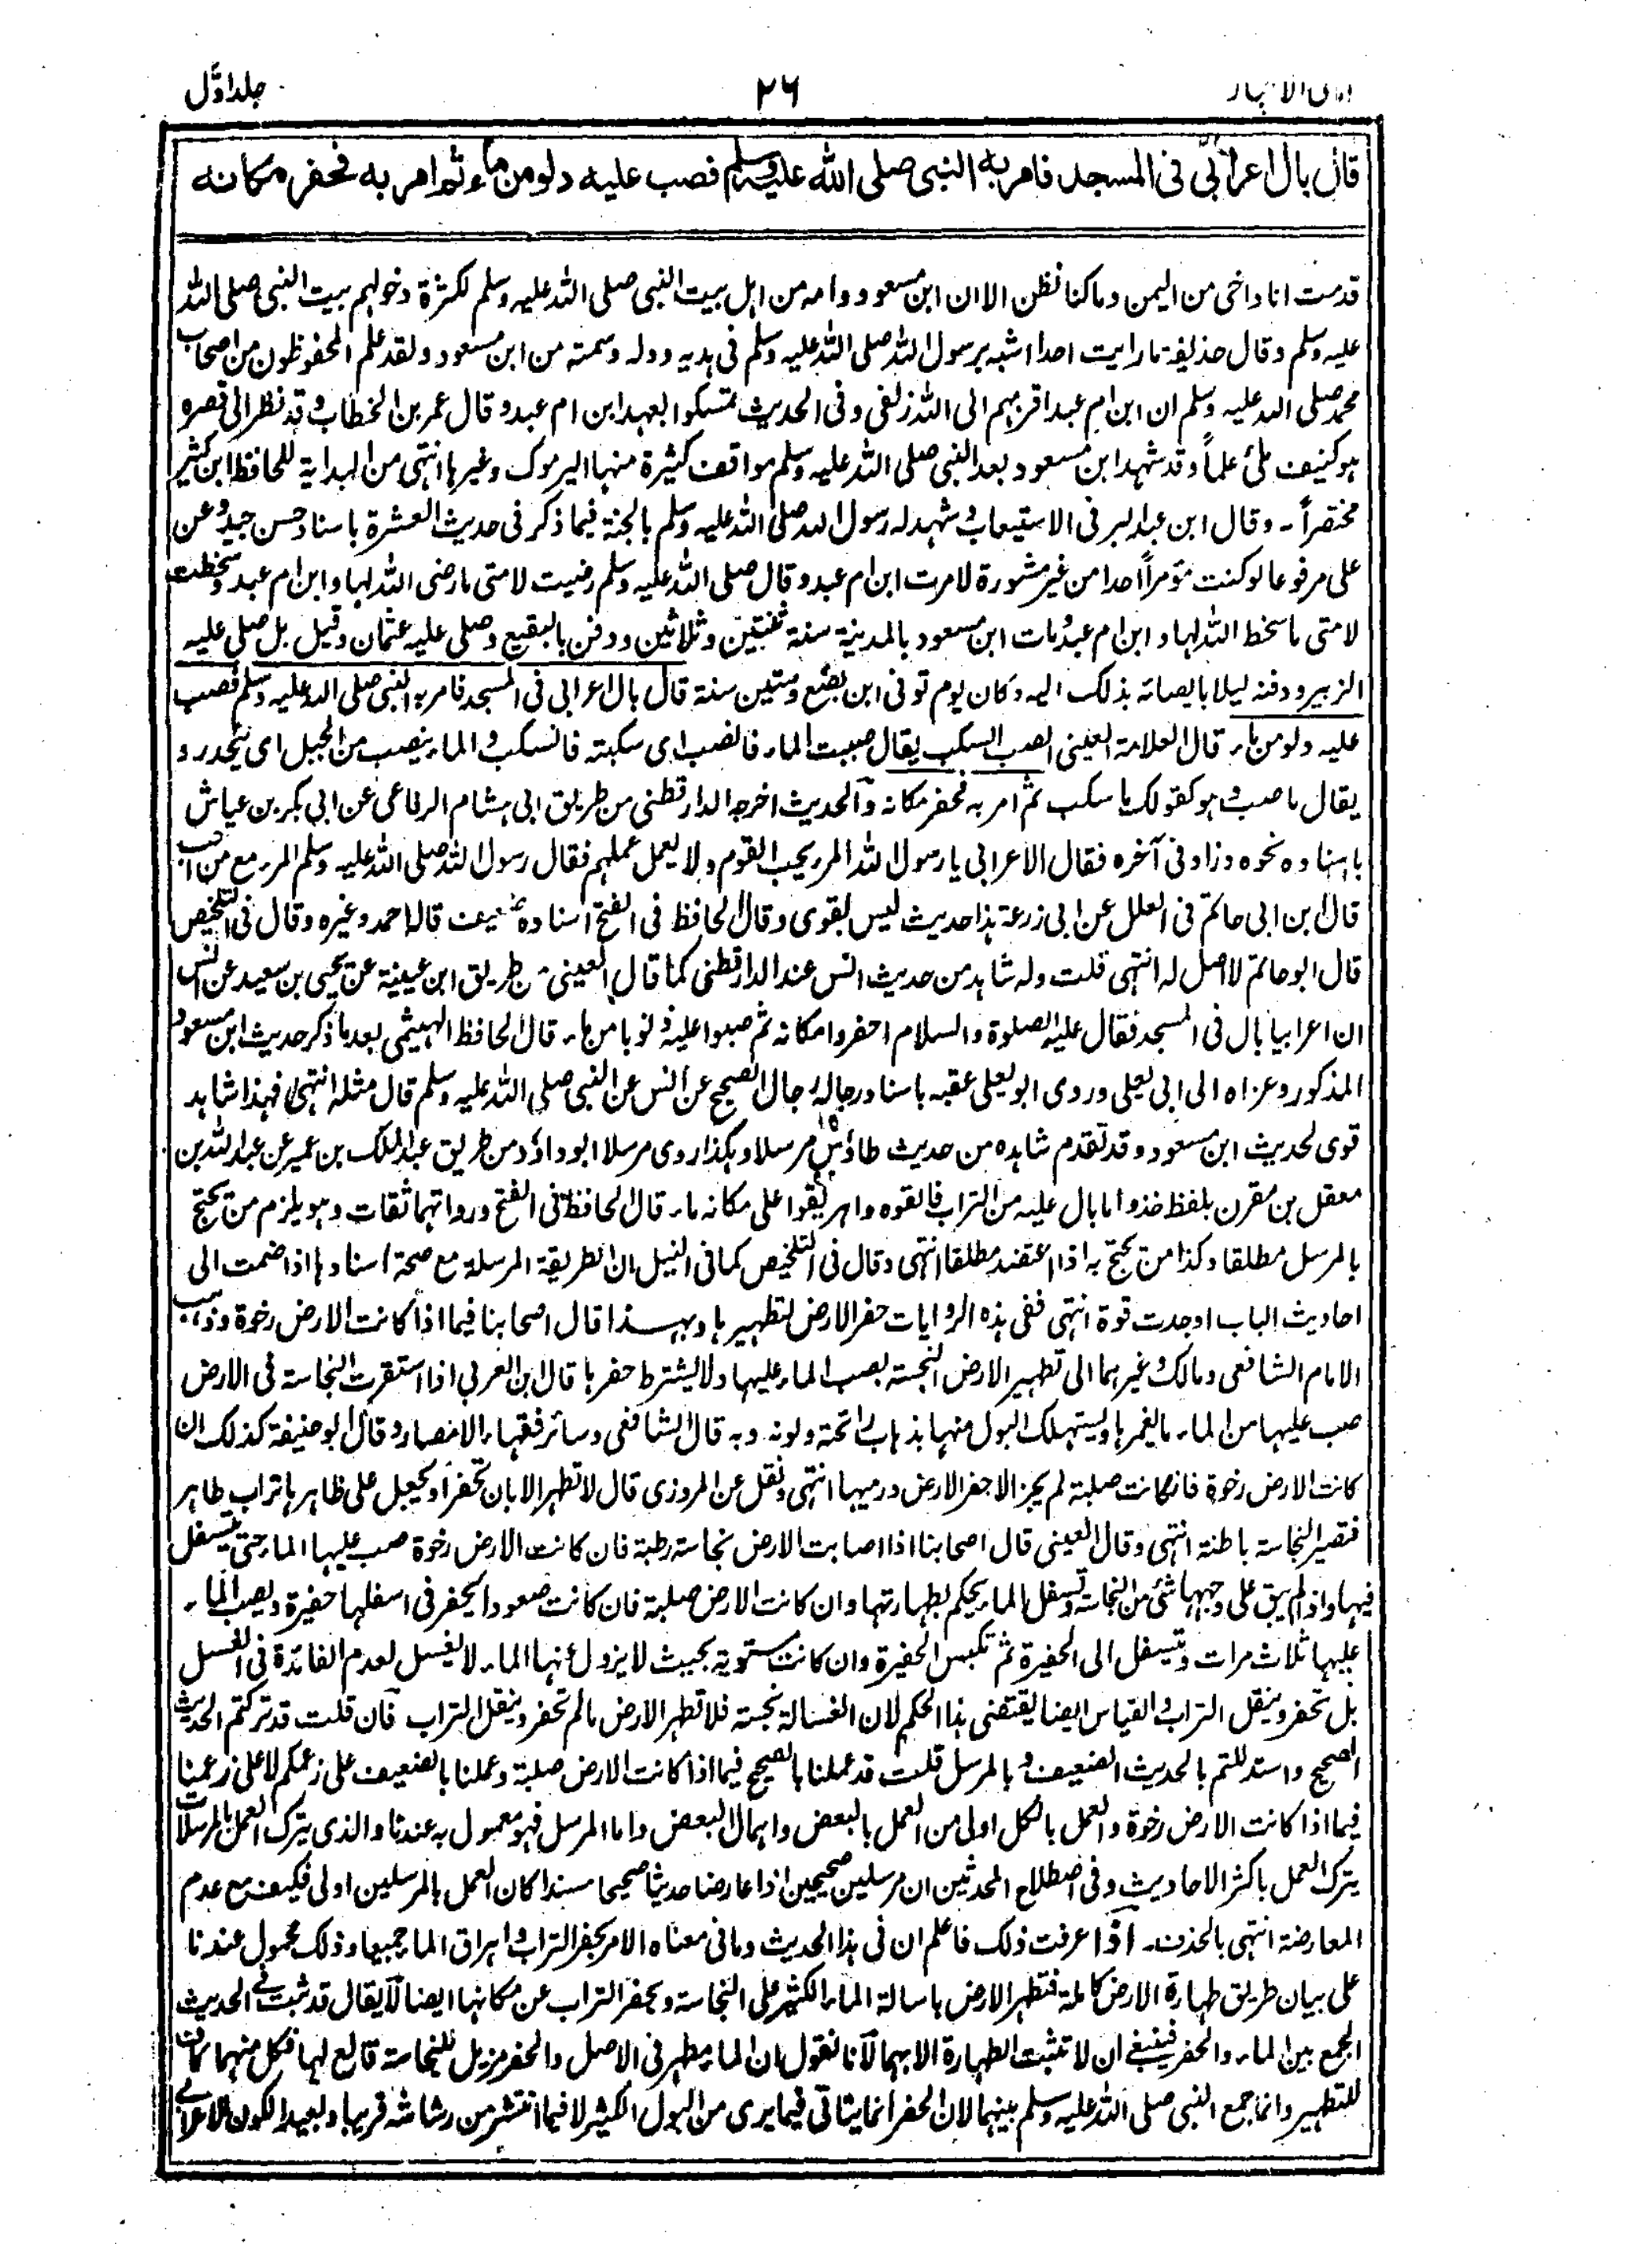 امانی الاحبار ٢٦ جلد اوّل
قال بال اعرابىّ فى المسجد فامر به النبى صلى الله عليه وسلم فصب عليه دلو من ماء ثم امر به فحفر مكانه
قدمت انا واخى من اليمن وما كنا نظن الا ان ابن مسعود وامه من اہل بيت النبى صلى الله عليه وسلم لكثرة دخولہم بيت النبى صلى الله
عليه وسلم وقال حذيفة ما رايت احدا اشبه برسول الله صلى الله عليه وسلم فى ہديه ودله وسمته من ابن مسعود ولقد علم المحفوظون من اصحاب
محمد صلى الله عليه وسلم ان ابن ام عبد اقربہم الى الله زلفى وفى الحديث تمسكوا بعہد ابن ام عبد وقال عمر بن الخطاب وقد نظر الى قصره
ہو كنيف ملئ علماً وقد شہد ابن مسعود بعد النبى صلى الله عليه وسلم مواقف كثيرة منہا اليرموك وغيرہا انتہى من البداية للحافظ ابن كثير
مختصراً ۔ وقال ابن عبد البر فى الاستيعاب وشہد له رسول الله صلى الله عليه وسلم بالجنة فيما ذكر فى حديث العشرة باسناد حسن جيد وعن
على مرفوعا لو كنت مؤمراً احدا من غير مشورة لامرت ابن ام عبد وقال صلى الله عليه وسلم رضيت لامتى ما رضى الله لہا وابن ام عبد وسخطت
لامتى ما سخط الله لہا وابن ام عبد ومات ابن مسعود بالمدينة سنة ثنتين وثلاثين ودفن بالبقيع وصلى عليه عثمان وقيل بل صلى عليه
الزبير ودفنه ليلا بايصائه بذلك اليه وكان يوم توفى ابن بضع وستين سنة قال بال اعرابى فى المسجد فامر به النبى صلى الله عليه وسلم فصب
عليه دلو من ماء قال العلامة العينى الصب السكب يقال صببت الماء فانصب اى سكبته فانسكب والماء ينصب من الجبل اى يتحدر و
يقال ماء صب وہو كقولك ماء سكب ثم امر به فحفر مكانه والحديث اخرجه الدارقطنى من طريق ابى ہشام الرفاعى عن ابى بكر بن عياش
باسناده نحوه وزاد فى آخره فقال الاعرابى يا رسول الله المرء يحب القوم ولا يعمل عملہم فقال رسول الله صلى الله عليه وسلم المرء مع من احب
قال ابن ابى حاتم فى العلل عن ابى زرعة ہذا حديث ليس بقوى وقال الحافظ فى الفتح اسناده ضعيف قاله احمد وغيره وقال فى التلخيص
قال ابو حاتم لا اصل له انتہى قلت وله شاہد من حديث انس عند الدارقطنى كما قال العينى من طريق ابن عيينة عن يحيى بن سعيد عن انس
ان اعرابيا بال فى المسجد فقال عليه الصلوة والسلام احفروا مكانه ثم صبوا عليه ذنوبا من ماء قال الحافظ الہيثمى بعد ما ذكر حديث ابن مسعود
المذكور وعزاه الى ابى يعلى وروى ابو يعلى عقبه باسناد رجاله رجال الصحيح عن انس عن النبى صلى الله عليه وسلم قال مثله انتہى فہذا شاہد
قوى لحديث ابن مسعود وقد تقدم شاہده من حديث طاؤس مرسلا وہكذا روى مرسلا ابو داؤد من طريق عبد الملك بن عمير عن عبد الله بن
معقل بن مقرن بلفظ خذوا ما بال عليه من التراب فالقوه واہريقوا على مكانه ماء قال الحافظ فى الفتح ورواتہما ثقات وہو يلزم من يحتج
بالمرسل مطلقا وكذا من يحتج به اذا اعتضد مطلقا انتہى وقال فى التلخيص كما فى النيل ان الطريقة المرسلة مع صحة اسنادہا اذا ضمت الى
احاديث الباب اوجدت قوة انتہى ففى ہذه الروايات حفر الارض لتطہيرہا وبہذا قال اصحابنا فيما اذا كانت الارض رخوة وذہب
الامام الشافعى ومالك وغيرہما الى تطہير الارض النجسة بصب الماء عليہا ولا يشترط حفرہا قال ابن العربى اذا استقرت النجاسة فى الارض
صب عليہا من الماء ما يغمرہا ويستہلك البول منہا بذہاب رائحته ولونه وبه قال الشافعى وسائر فقہاء الامصار وقال ابو حنيفة كذلك ان
كانت الارض رخوة فان كانت صلبة لم يجز الا حفر الارض ورميہا انتہى ونقل عن المروزى قال لا تطہر الا بان تحفر او يجعل على ظاہرہا تراب طاہر
فتصير النجاسة باطنة انتہى وقال العينى قال اصحابنا اذا اصابت الارض نجاسة رطبة فان كانت الارض رخوة صب عليہا الماء حتى يتسفل
فيہا واذا لم يبق على وجہہا شئ من النجاسة وتسفل الماء يحكم بطہارتہا وان كانت الارض صلبة فان كانت صعودا يحفر فى اسفلہا حفيرة ويصب الماء
عليہا ثلاث مرات وتتسفل الى الحفيرة ثم تكبس الحفيرة وان كانت مستوية بحيث لا يزول عنہا الماء لا يغسل لعدم الفائدة فى الغسل
بل تحفر وينقل التراب والقياس ايضا يقتضى ہذا الحكم لان الغسالة نجسة فلا تطہر الارض ما لم تحفر وينقل التراب فان قلت قد تركتم الحديث
الصحيح واستدللتم بالحديث الضعيف وبالمرسل قلت قد عملنا بالصحيح فيما اذا كانت الارض صلبة وعملنا بالضعيف على زعمكم لا على زعمنا
فيما اذا كانت الارض رخوة والعمل بالكل اولى من العمل بالبعض واہمال البعض واما المرسل فہو معمول به عندنا والذى يترك العمل بالمرسلات
يترك العمل باكثر الاحاديث وفى اصطلاح المحدثين ان مرسلين صحيحين اذا عارضا حديثا صحيحا مسندا كان العمل بالمرسلين اولى فكيف مع عدم
المعارضة انتہى بالحذف۔ اذا عرفت ذلك فاعلم ان فى ہذا الحديث وما فى معناه الامر بحفر التراب واہراق الماء جميعا وذلك محمول عندنا
على بيان طريق طہارة الارض كاملة فتطہر الارض باسالة الماء الكثير على النجاسة وبحفر التراب عن مكانہا ايضا لا يقال قد ثبت فى الحديث
الجمع بين الماء والحفر فينبغى ان لا تثبت الطہارة الا بہما لانا نقول ان الماء مطہر فى الاصل والحفر مزيل للنجاسة قالع لہا فكل منہما كاف
للتطہير وانما جمع النبى صلى الله عليه وسلم بينہما لان الحفر انما يتاتى فيما يرى من البول الكثير لا فيما انتشر من رشاشه قريبا وبعيدا لكون الاعرابى